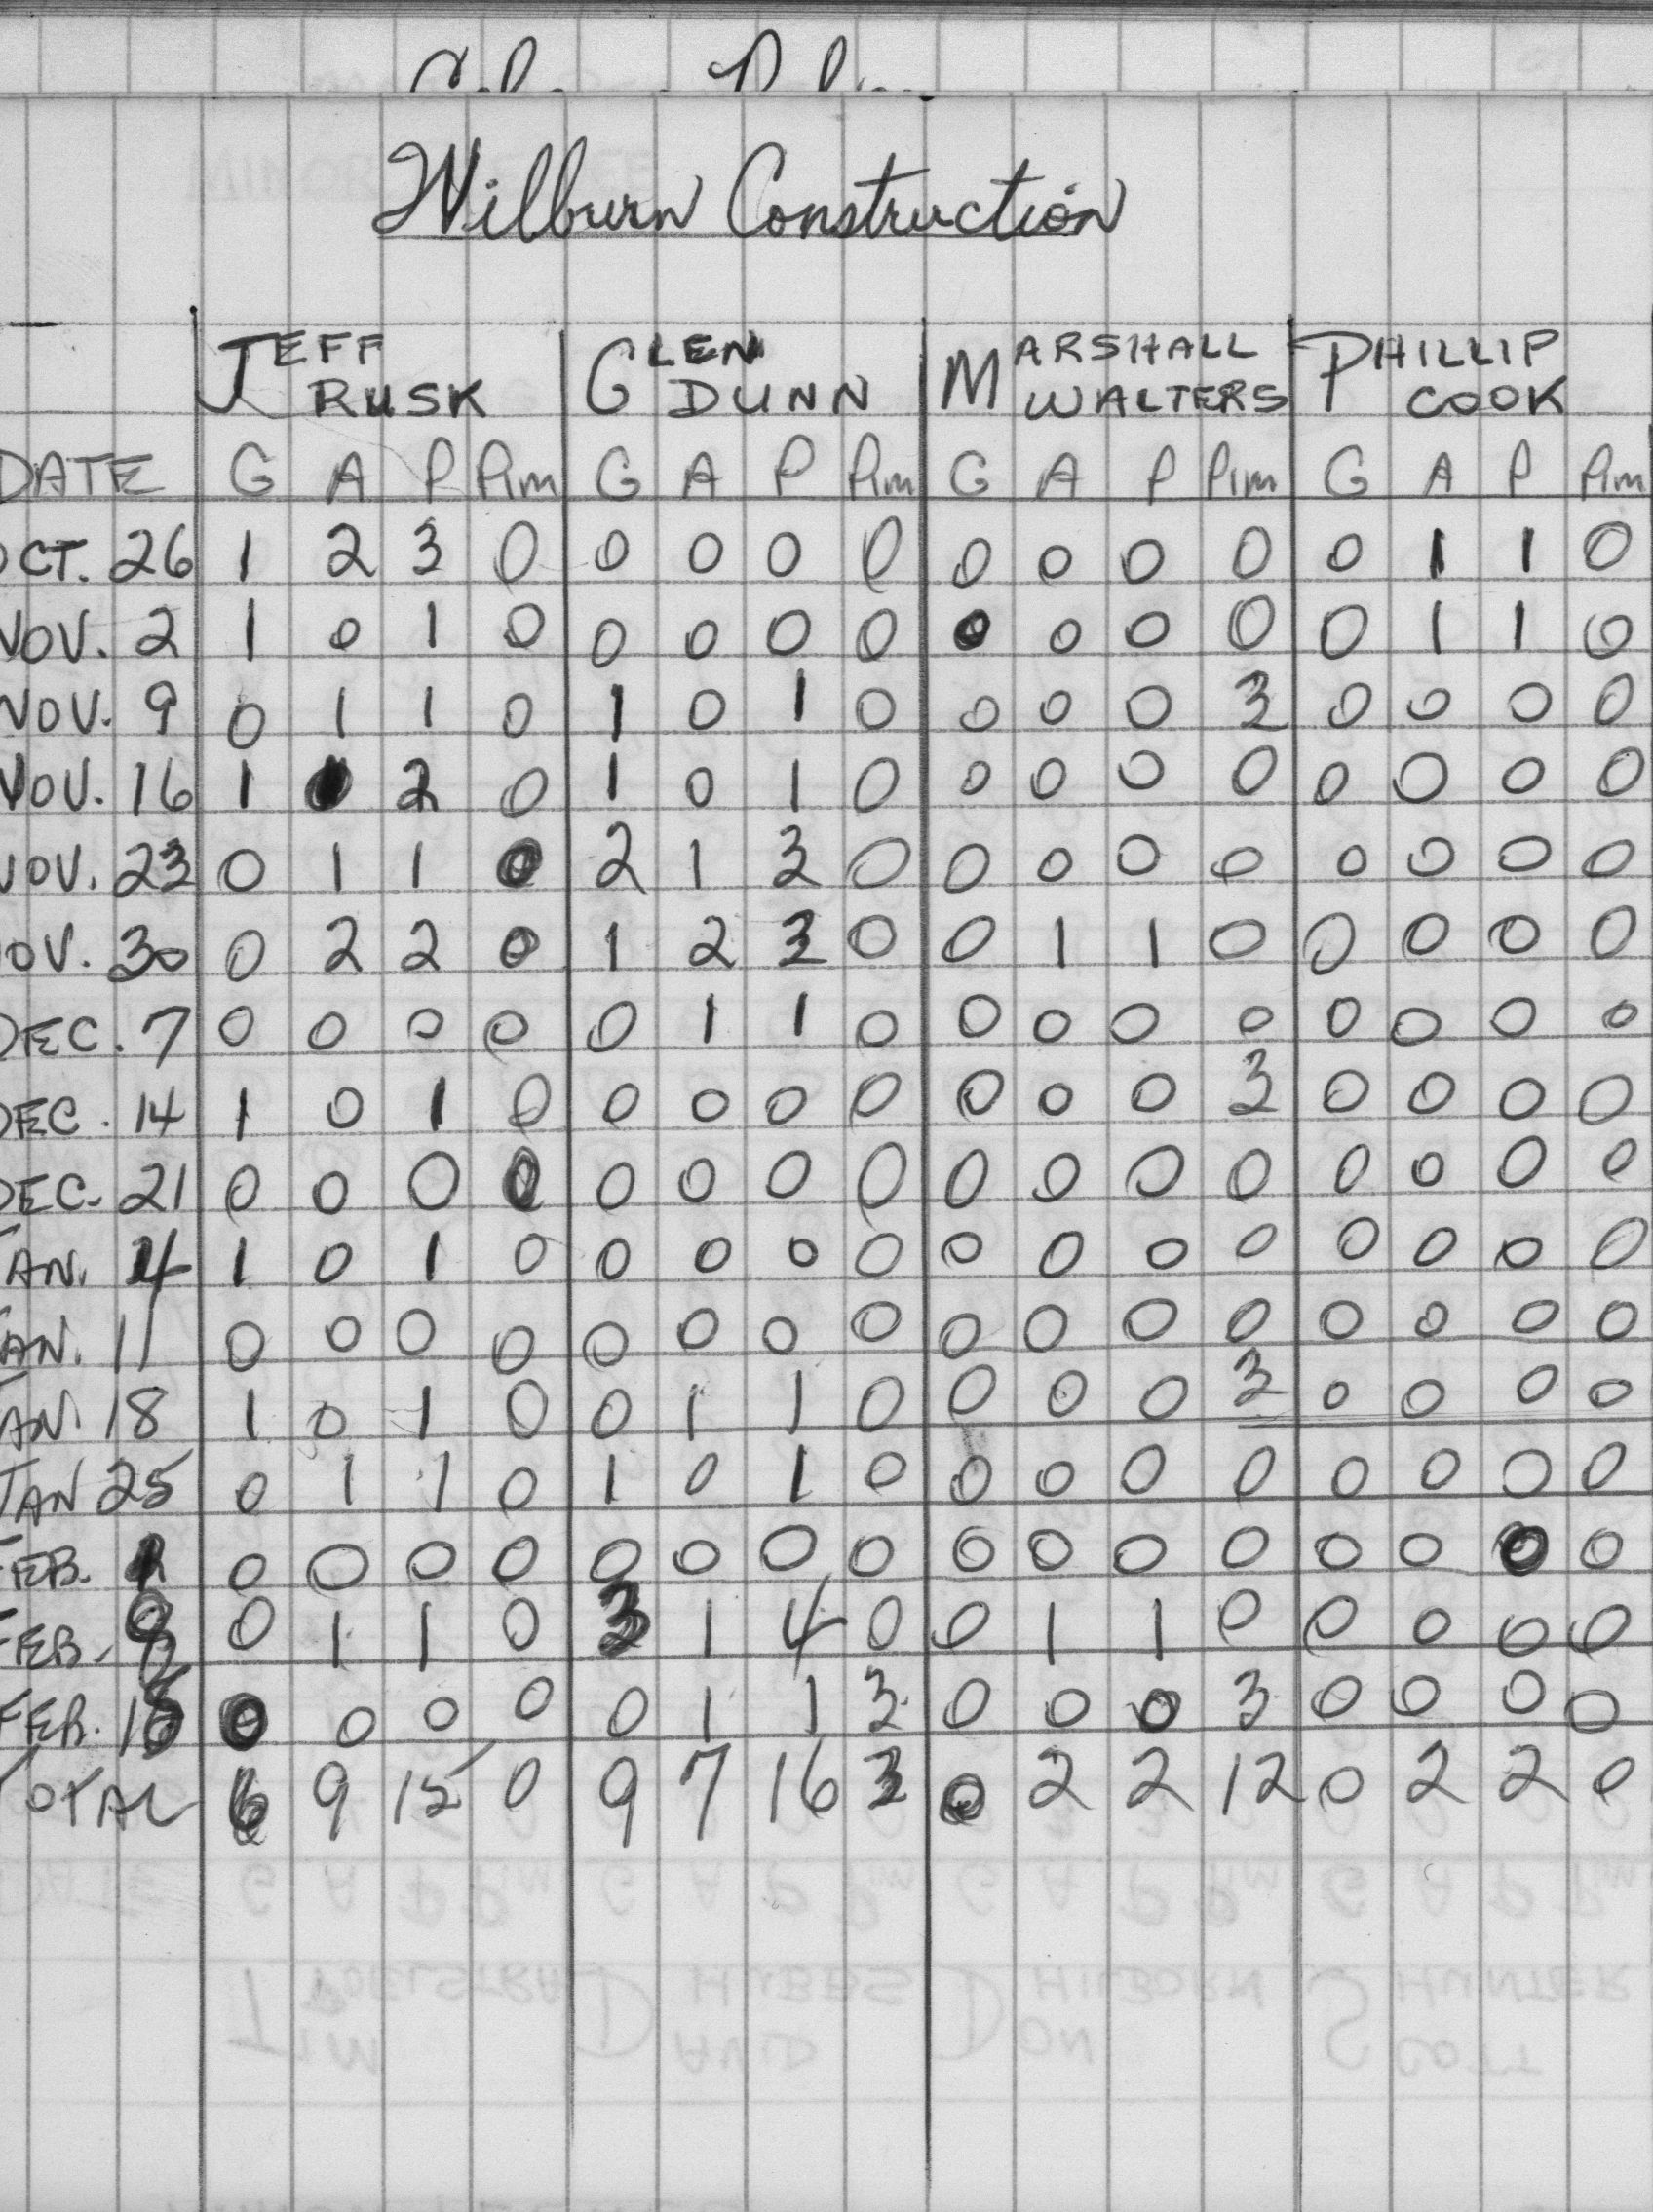 Wilburn Construction
JEFF RUSK GLEN DUNN MARSHALL WALTERS PHILLIP COOK
DATE G A P Pim G A P Pim G A P Pim G A P Pim
OCT. 26 1 2 3 0 0 0 0 0 0 0 0 0 0 1 1 0
NOV. 2 1 0 1 0 0 0 0 0 0 0 0 0 0 1 1 0
NOV. 9 0 1 1 0 1 0 1 0 0 0 0 3 0 0 0 0
NOV. 16 1 1 2 0 1 0 1 0 0 0 0 0 0 0 0 0
NOV. 23 0 1 1 0 2 1 3 0 0 0 0 0 0 0 0 0
NOV. 30 0 2 2 0 1 2 3 0 0 1 1 0 0 0 0 0
DEC. 7 0 0 0 0 0 1 1 0 0 0 0 0 0 0 0 0
DEC. 14 1 0 1 0 0 0 0 0 0 0 0 3 0 0 0 0
DEC. 21 0 0 0 0 0 0 0 0 0 0 0 0 0 0 0 0
JAN. 4 1 0 1 0 0 0 0 0 0 0 0 0 0 0 0 0
JAN. 11 0 0 0 0 0 0 0 0 0 0 0 0 0 0 0 0
JAN. 18 1 0 1 0 0 1 1 0 0 0 0 3 0 0 0 0
JAN 25 0 1 1 0 1 0 1 0 0 0 0 0 0 0 0 0
FEB. 0 0 0 0 0 0 0 0 0 0 0 0 0 0 0 0
FEB. 0 1 1 0 3 1 4 0 0 1 1 0 0 0 0 0
FEB. 0 0 0 0 0 1 1 3 0 0 0 3 0 0 0 0
TOTAL 6 9 15 0 9 7 16 3 0 2 2 12 0 2 2 0